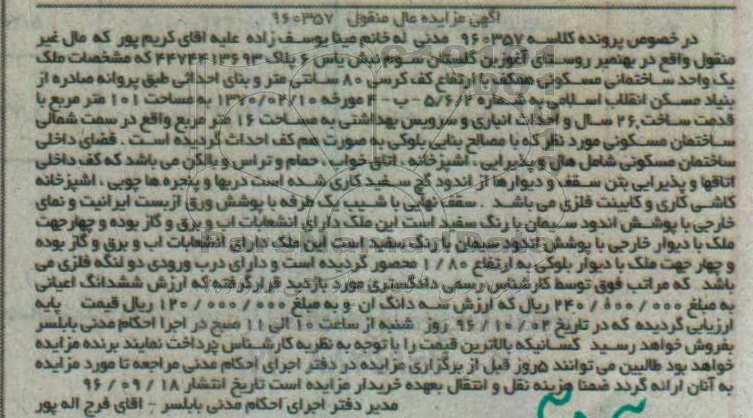 آگهی مزایده مال منقول ۹۶۰۳۵۷
در خصوص پرونده کلاسه ۹۶۰۳۵۷ مدنی له خانم مینا یوسف زاده علیه اقای کریم پور که مال غیر
منقول واقع در بهنمیر روستای آغوزبن گلستان سوم نبش یاس ۶ پلاک ۴۴۷۴۴۱۳۶۹۳ که مشخصات ملک
یک واحد ساختمانی مسکونی همکف با ارتفاع کف کرسی ۸۰ سانتی متر و بنای احداثی طبق پروانه صادره از
بنیاد مسکن انقلاب اسلامی به شماره ۵/۶/۲ - ب - ۴ مورخه ۱۳۷۰/۰۲/۱۰ به مساحت ۱۰۱ متر مربع با
قدمت ساخت ۲۶ سال و احداث انباری و سرویس بهداشتی به مساحت ۱۶ متر مربع واقع در سمت شمالی
ساختمان مسکونی مورد نظر که با مصالح بنایی بلوکی به صورت هم کف احداث گردیده است . فضای داخلی
ساختمان مسکونی شامل هال و پذیرایی ، آشپزخانه ، اتاق خواب ، حمام و تراس و بالکن می باشد که کف داخلی
اتاقها و پذیرایی بتن سقف و دیوارها از اندود گچ سفید کاری شده است دربها و پنجره ها چوبی ، اشپزخانه
کاشی کاری و کابینت فلزی می باشد . سقف نهایی با شیب یک طرفه با پوشش ورق ازبست ایرانیت و نمای
خارجی با پوشش اندود سیمان با رنگ سفید است این ملک دارای انشعابات اب و برق و گاز بوده و چهارجهت
ملک با دیوار خارجی با پوشش اندود سیمان با رنگ سفید است این ملک دارای انشعابات اب و برق و گاز بوده
و چهار جهت ملک با دیوار بلوکی به ارتفاع ۱/۸۰ محصور گردیده است و دارای درب ورودی دو لنگه فلزی می
باشد که مراتب فوق توسط کارشناس رسمی دادگستری مورد بازدید قرارگرفته که ارزش ششدانگ اعیانی
به مبلغ ۲۴۰/۰۰۰/۰۰۰ ریال که ارزش سه دانگ ان و به مبلغ ۱۲۰/۰۰۰/۰۰۰ ریال قیمت پایه
ارزیابی گردیده که در تاریخ ۹۶/۱۰/۰۲ روز شنبه از ساعت ۱۰ الی ۱۱ صبح در اجرا احکام مدنی بابلسر
بفروش خواهد رسید کسانیکه بالاترین قیمت را با توجه به نظریه کارشناس پرداخت نمایند برنده مزایده
خواهد بود طالبین می توانند ۵روز قبل از برگزاری مزایده در دفتر اجرای احکام مدنی مراجعه تا مورد مزایده
به آنان ارائه گردد ضمنا هزینه نقل و انتقال بعهده خریدار مزایده است تاریخ انتشار ۹۶/۰۹/۱۸
مدیر دفتر اجرای احکام مدنی بابلسر - اقای فرج اله پور